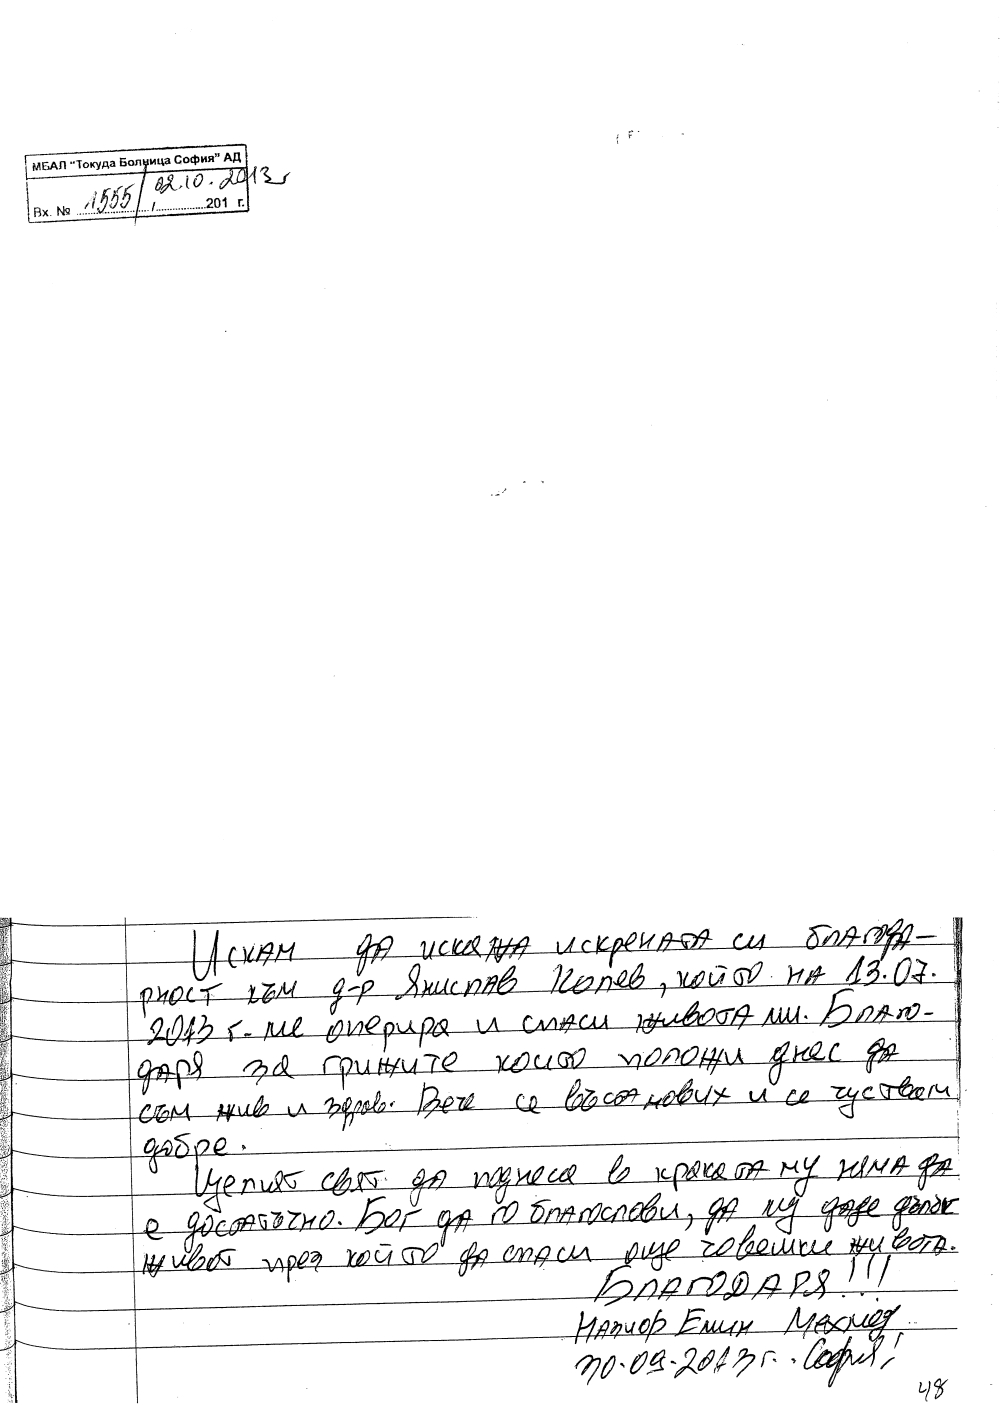 МБАЛ "Токуда Болница София" АД
Вх. № 1555 / 02.10.2013 г
/ 201 г.
Искам да искажа искрената си благода-
рност към д-р Янислав Колев, който на 13.07.
2013 г. ме оперира и спаси живота ми. Благо-
даря за грижите които положи днес да
съм жив и здрав. Вече се възтанових и се чуствам
добре.
Целият свят да поднеса в краката му няма да
е достатъчно. Бог да го благослови, да му даде дълък
живот през който да спаси още човешки живота.
БЛАГОДАРЯ!!!
Емин Мехмед
30.09.2013 г. София!
48